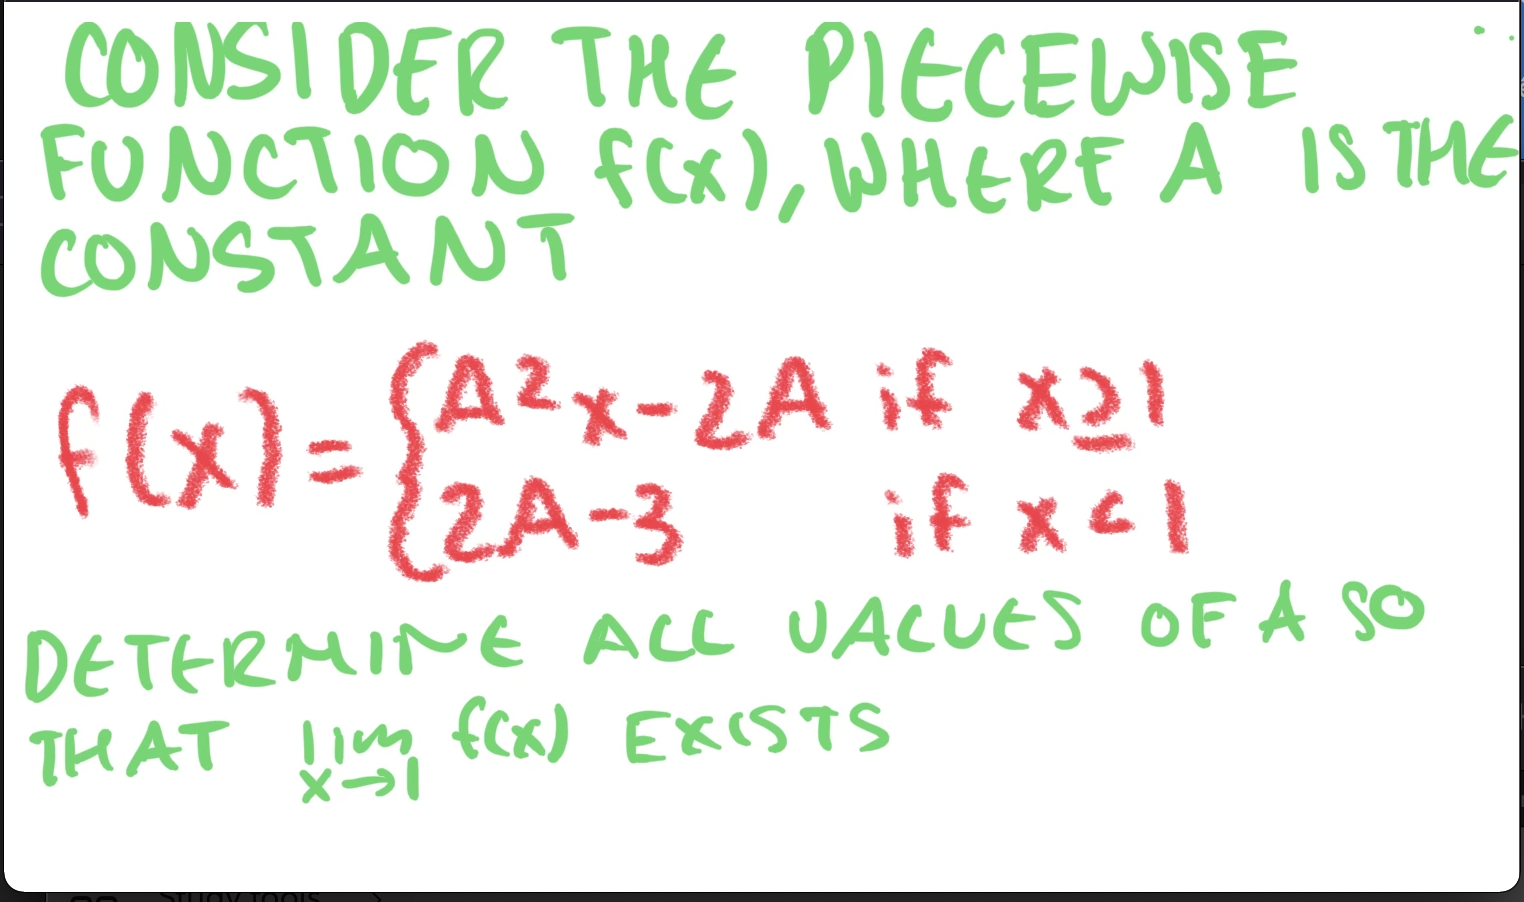 CONSIDER THE PIECEWISE
FUNCTION f(x), WHERE A IS THE
CONSTANT
f(x)= { A²x-2A if x≥1
2A-3 if x<1
DETERMINE ALL VALUES OF A SO
THAT lim f(x) EXISTS
x→1
Study tools